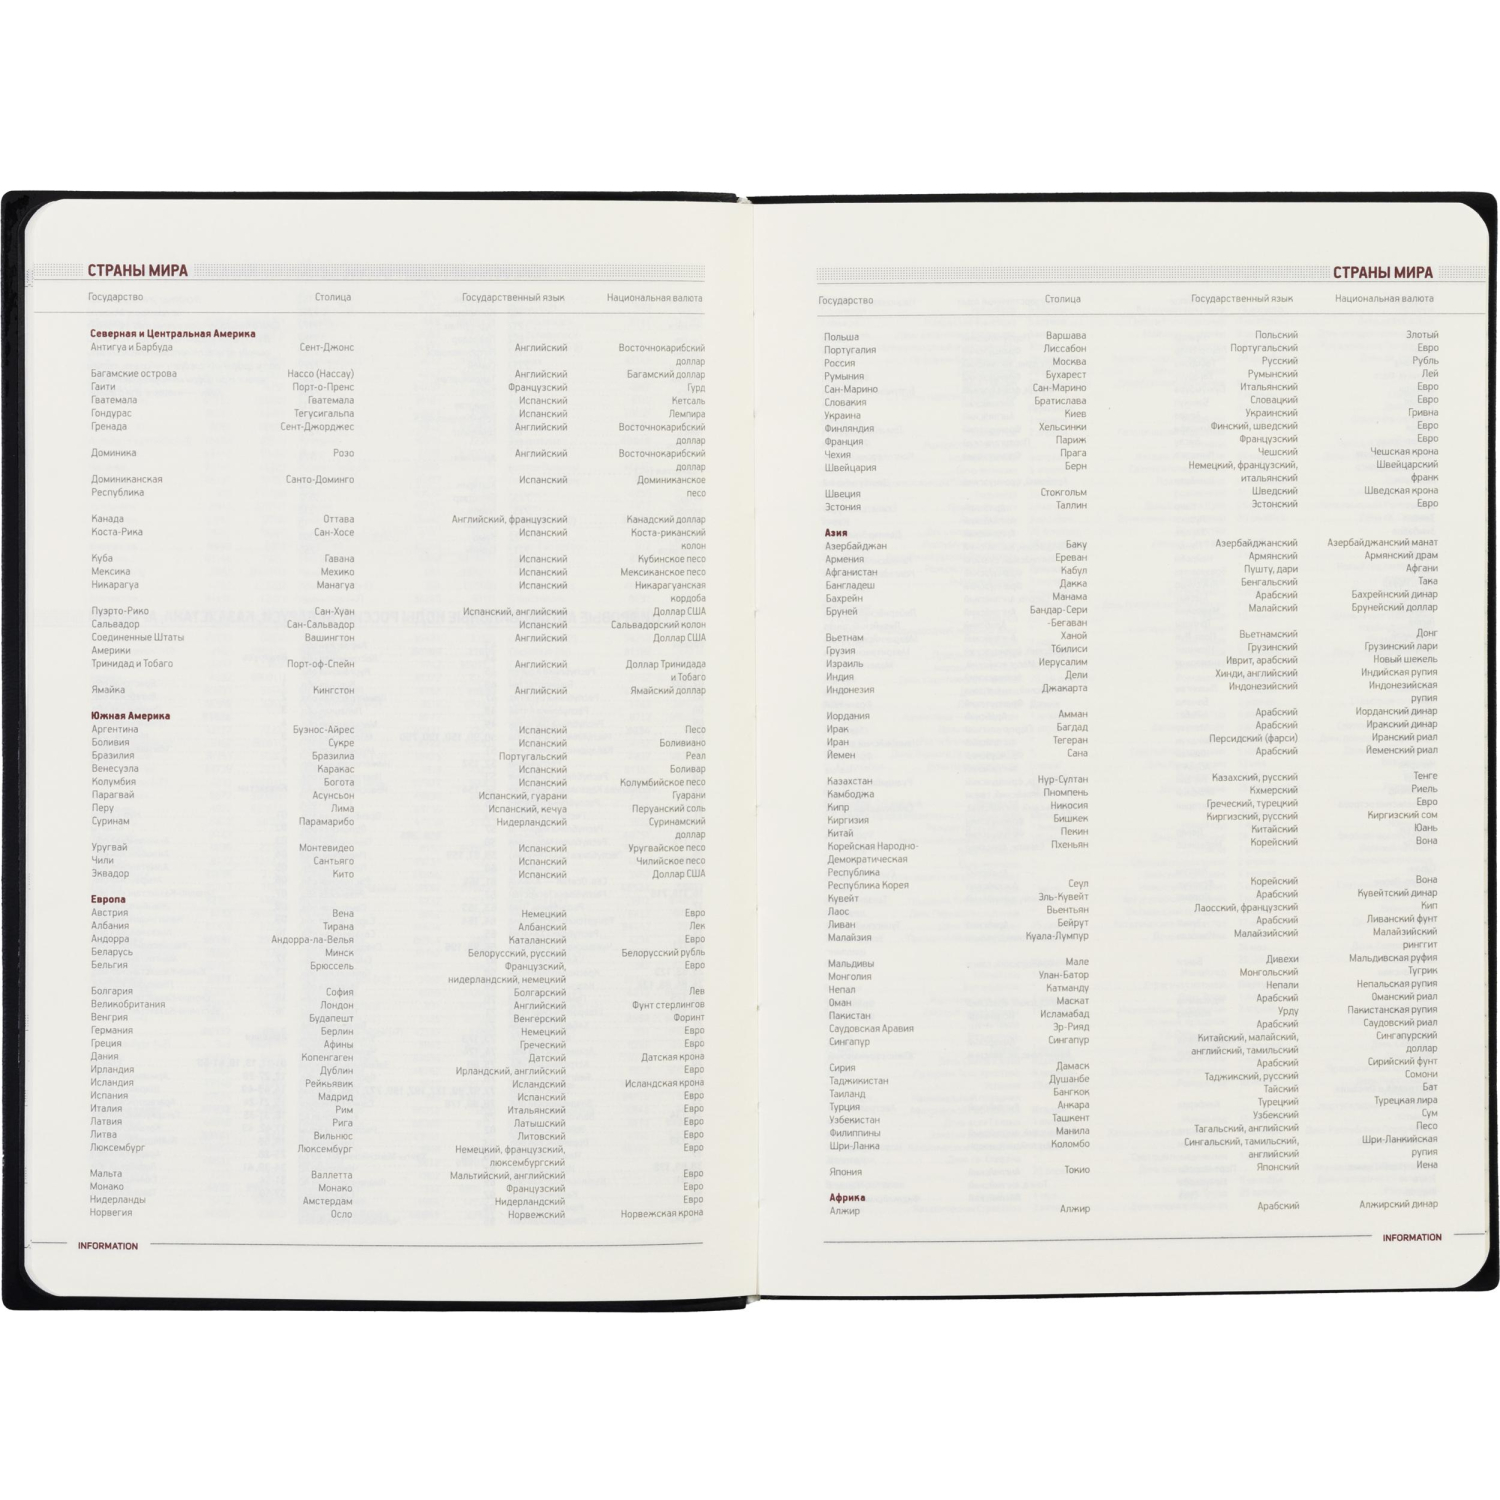 СТРАНЫ МИРА
Государство Столица Государственный язык Национальная валюта
Северная и Центральная Америка
Антигуа и Барбуда Сент-Джонс Английский Восточнокарибский
доллар
Багамские острова Нассо (Нассау) Английский Багамский доллар
Гаити Порт-о-Пренс Французский Гурд
Гватемала Гватемала Испанский Кетсаль
Гондурас Тегусигальпа Испанский Лемпира
Гренада Сент-Джорджес Английский Восточнокарибский
доллар
Доминика Розо Английский Восточнокарибский
доллар
Доминиканская Санто-Доминго Испанский Доминиканское
Республика песо
Канада Оттава Английский, французский Канадский доллар
Коста-Рика Сан-Хосе Испанский Коста-риканский
колон
Куба Гавана Испанский Кубинское песо
Мексика Мехико Испанский Мексиканское песо
Никарагуа Манагуа Испанский Никарагуанская
кордоба
Пуэрто-Рико Сан-Хуан Испанский, английский Доллар США
Сальвадор Сан-Сальвадор Испанский Сальвадорский колон
Соединенные Штаты Вашингтон Английский Доллар США
Америки
Тринидад и Тобаго Порт-оф-Спейн Английский Доллар Тринидада
и Тобаго
Ямайка Кингстон Английский Ямайский доллар
Южная Америка
Аргентина Буэнос-Айрес Испанский Песо
Боливия Сукре Испанский Боливиано
Бразилия Бразилиа Португальский Реал
Венесуэла Каракас Испанский Боливар
Колумбия Богота Испанский Колумбийское песо
Парагвай Асунсьон Испанский, гуарани Гуарани
Перу Лима Испанский, кечуа Перуанский соль
Суринам Парамарибо Нидерландский Суринамский
доллар
Уругвай Монтевидео Испанский Уругвайское песо
Чили Сантьяго Испанский Чилийское песо
Эквадор Кито Испанский Доллар США
Европа
Австрия Вена Немецкий Евро
Албания Тирана Албанский Лек
Андорра Андорра-ла-Велья Каталанский Евро
Беларусь Минск Белорусский, русский Белорусский рубль
Бельгия Брюссель Французский, Евро
нидерландский, немецкий
Болгария София Болгарский Лев
Великобритания Лондон Английский Фунт стерлингов
Венгрия Будапешт Венгерский Форинт
Германия Берлин Немецкий Евро
Греция Афины Греческий Евро
Дания Копенгаген Датский Датская крона
Ирландия Дублин Ирландский, английский Евро
Исландия Рейкьявик Исландский Исландская крона
Испания Мадрид Испанский Евро
Италия Рим Итальянский Евро
Латвия Рига Латышский Евро
Литва Вильнюс Литовский Евро
Люксембург Люксембург Немецкий, французский, Евро
люксембургский
Мальта Валлетта Мальтийский, английский Евро
Монако Монако Французский Евро
Нидерланды Амстердам Нидерландский Евро
Норвегия Осло Норвежский Норвежская крона
INFORMATION
СТРАНЫ МИРА
Государство Столица Государственный язык Национальная валюта
Польша Варшава Польский Злотый
Португалия Лиссабон Португальский Евро
Россия Москва Русский Рубль
Румыния Бухарест Румынский Лей
Сан-Марино Сан-Марино Итальянский Евро
Словакия Братислава Словацкий Евро
Украина Киев Украинский Гривна
Финляндия Хельсинки Финский, шведский Евро
Франция Париж Французский Евро
Чехия Прага Чешский Чешская крона
Швейцария Берн Немецкий, французский, Швейцарский
итальянский франк
Швеция Стокгольм Шведский Шведская крона
Эстония Таллин Эстонский Евро
Азия
Азербайджан Баку Азербайджанский Азербайджанский манат
Армения Ереван Армянский Армянский драм
Афганистан Кабул Пушту, дари Афгани
Бангладеш Дакка Бенгальский Така
Бахрейн Манама Арабский Бахрейнский динар
Бруней Бандар-Сери Малайский Брунейский доллар
-Бегаван
Вьетнам Ханой Вьетнамский Донг
Грузия Тбилиси Грузинский Грузинский лари
Израиль Иерусалим Иврит, арабский Новый шекель
Индия Дели Хинди, английский Индийская рупия
Индонезия Джакарта Индонезийский Индонезийская
рупия
Иордания Амман Арабский Иорданский динар
Ирак Багдад Арабский Иракский динар
Иран Тегеран Персидский (фарси) Иранский риал
Йемен Сана Арабский Йеменский риал
Казахстан Нур-Султан Казахский, русский Тенге
Камбоджа Пномпень Кхмерский Риель
Кипр Никосия Греческий, турецкий Евро
Киргизия Бишкек Киргизский, русский Киргизский сом
Китай Пекин Китайский Юань
Корейская Народно- Пхеньян Корейский Вона
Демократическая
Республика
Республика Корея Сеул Корейский Вона
Кувейт Эль-Кувейт Арабский Кувейтский динар
Лаос Вьентьян Лаосский, французский Кип
Ливан Бейрут Арабский Ливанский фунт
Малайзия Куала-Лумпур Малайзийский Малайзийский
ринггит
Мальдивы Мале Дивехи Мальдивская руфия
Монголия Улан-Батор Монгольский Тугрик
Непал Катманду Непали Непальская рупия
Оман Маскат Арабский Оманский риал
Пакистан Исламабад Урду Пакистанская рупия
Саудовская Аравия Эр-Рияд Арабский Саудовский риал
Сингапур Сингапур Китайский, малайский, Сингапурский
английский, тамильский доллар
Сирия Дамаск Арабский Сирийский фунт
Таджикистан Душанбе Таджикский, русский Сомони
Таиланд Бангкок Тайский Бат
Турция Анкара Турецкий Турецкая лира
Узбекистан Ташкент Узбекский Сум
Филиппины Манила Тагальский, английский Песо
Шри-Ланка Коломбо Сингальский, тамильский, Шри-Ланкийская
английский рупия
Япония Токио Японский Иена
Африка
Алжир Алжир Арабский Алжирский динар
INFORMATION